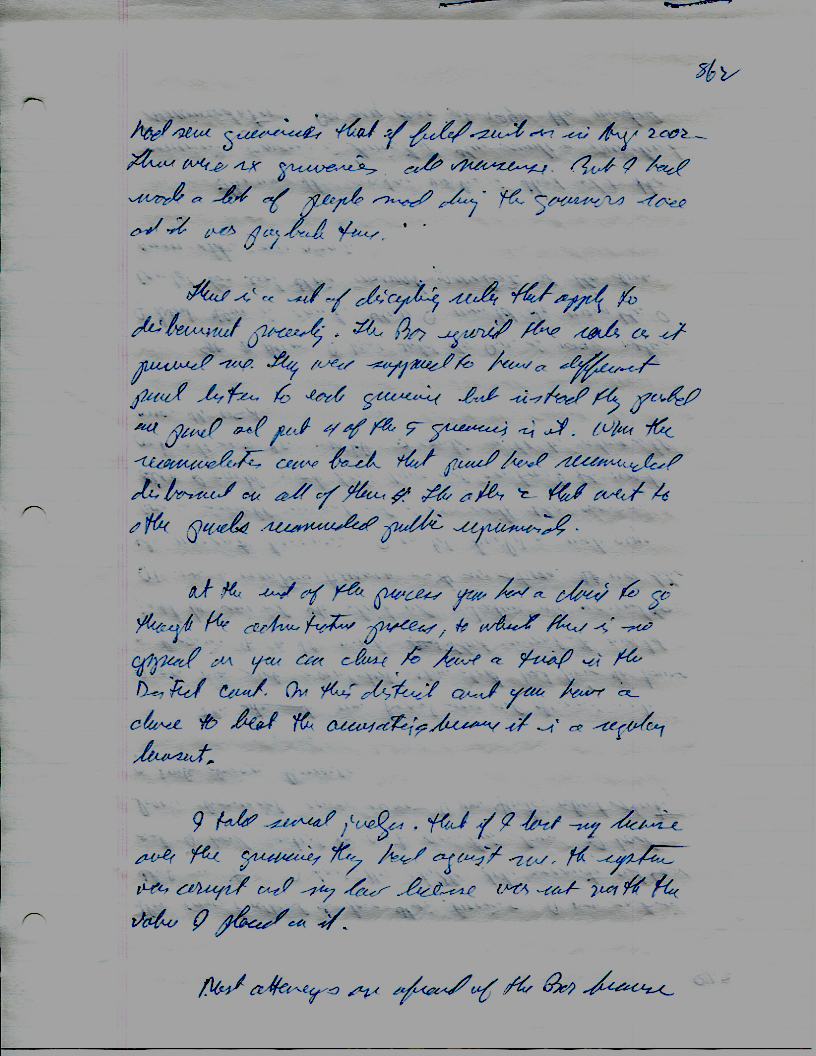 862
had some grievances that I filed suit on in Aug 2002 -
There were six grievances all nonsense. But I had
made a lot of people mad during the governors race
and it was payback time.
There is a set of discipline rules that apply to
disbarment proceeding. The Bar ignored those rules as it
pursued me. They were supposed to have a different
panel listen to each grievance but instead they picked
one panel and put 4 of the grievances in it. When the
recommendations came back that panel had recommended
disbarment on all of them. The other 2 that went to
other panels recommended public reprimands.
At the end of the process you have a choice to go
though the administrative process, to which there is no
appeal or you can chose to have a trial in the
District court. In this district court you have a
chance to beat the accusations because it is a regular
lawsuit.
I told several judges. that if I lost my license
over the grievances they had against me. the system
was corrupt and my law license was not worth the
value I placed on it.
Most attorneys are afraid of the Bar because